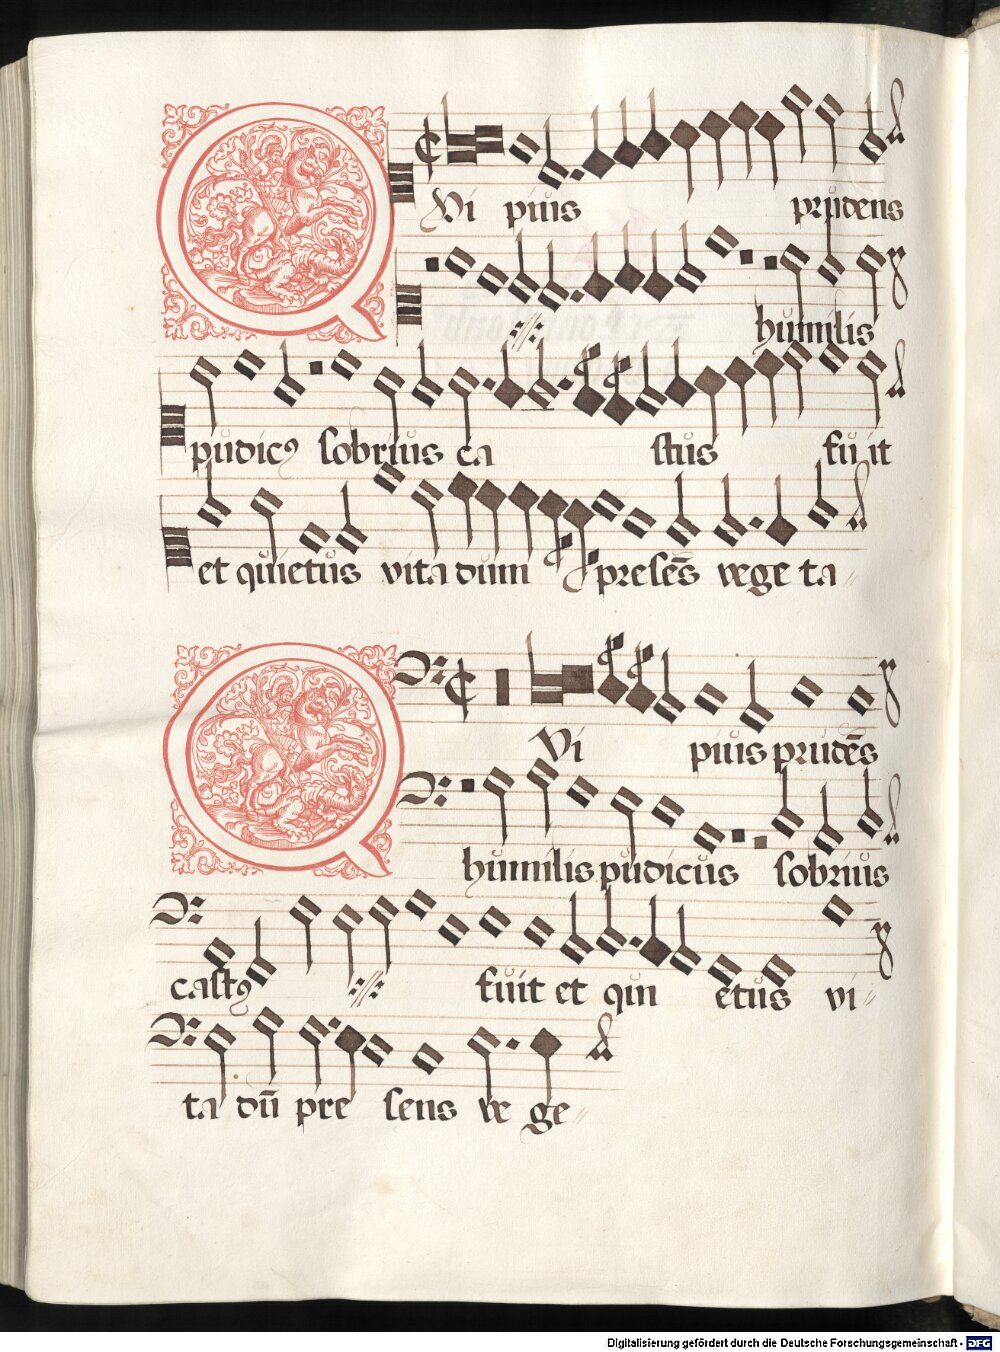 QVi pius prudens
humilis
pudicꝰ sobrius ca stus fuit
et quietus vita dum presēs vege ta
QVi pius prudēs
humilis pudicus sobrius
castꝰ fuit et qui etus vi
ta dū pre sens ve ge
Digitalisierung gefördert durch die Deutsche Forschungsgemeinschaft - DFG